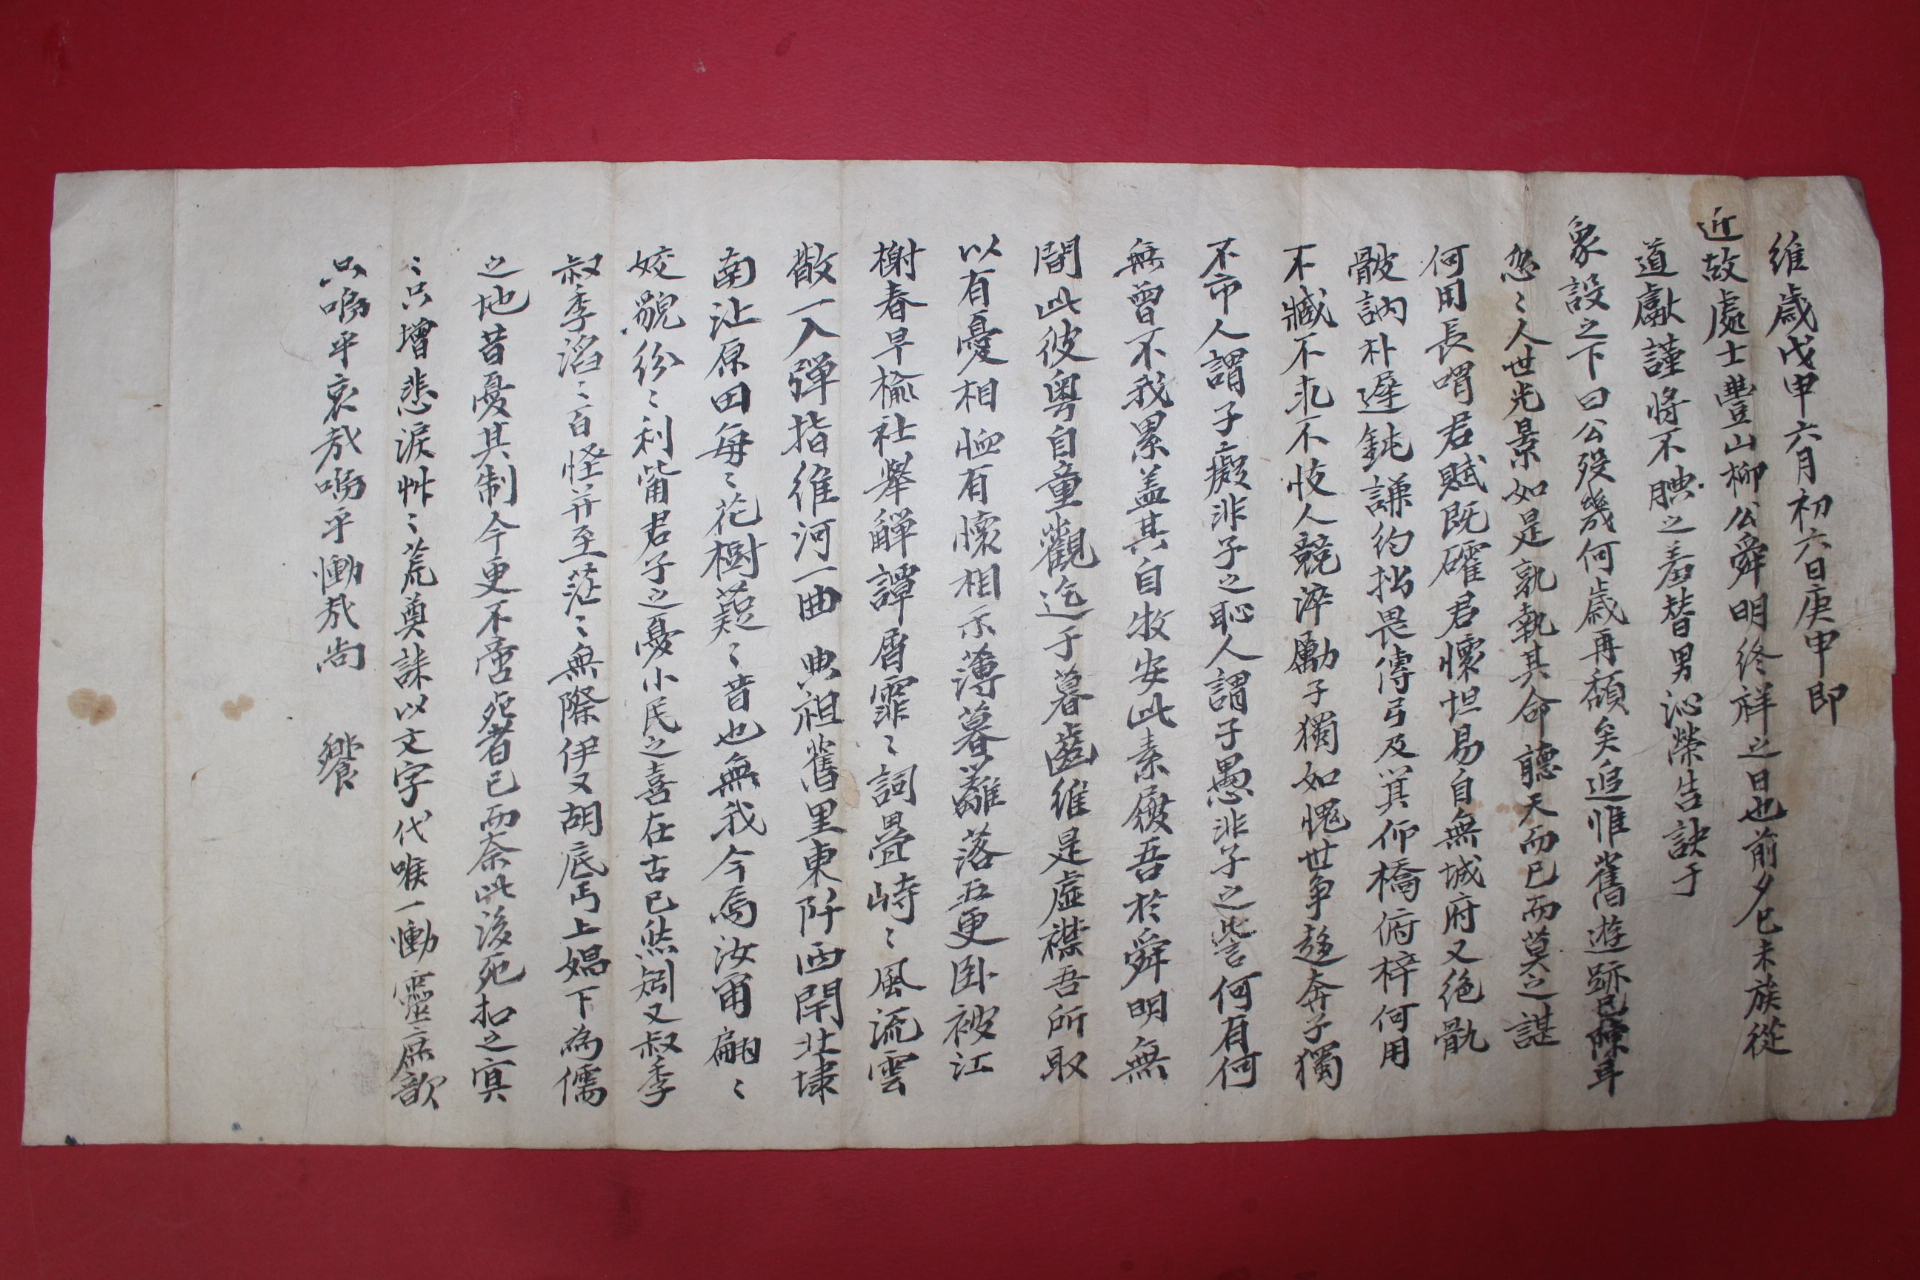 維歲戊申六月初六日庚申即
近故處士豐山柳公舜明終祥之日也前夕己未族從
道獻謹將不腆之羞替男沁榮告訣于
象設之下曰公歿幾何歲再頹矣追惟舊遊跡已陳
忽〻人世光景如是孰執其命聽天而已而莫之諶
何用長喟君賦既確君懷坦易自無城府又絶骩
骳訥朴遲鈍謙約拙畏傳弓及箕仰橋俯梓何用
不臧不求不忮人競淬勵子獨如愧世爭趍奔子獨
不市人謂子癡非子之恥人謂子愚非子之訾何有何
無曾不我累盖其自牧安此素履吾於舜明無
間此彼粤自童觀迄于暮齒維是虛襟吾所取
以有憂相恤有懷相示薄暮蘺落五更卧被江
榭春早楡社舉觶譚屑霏〻詞疊峙〻風流雲
散一入彈指維河一曲 典祖舊里東阡西閈北埭
南沚原田每〻花樹薿〻昔也無我今焉汝甭翩〻
姣貌份〻利觜君子之憂小民之喜在古已然矧又叔季
叔季滔〻百怪並至茫〻無際伊又胡底丐上娼下為儒
之地昔憂其制今更不啻死者已而奈此後死扣之冥
〻只增悲淚艸〻荒奠誄以文字代喉一慟靈庶歆
只嗚乎哀哉嗚乎慟哉尚 饗